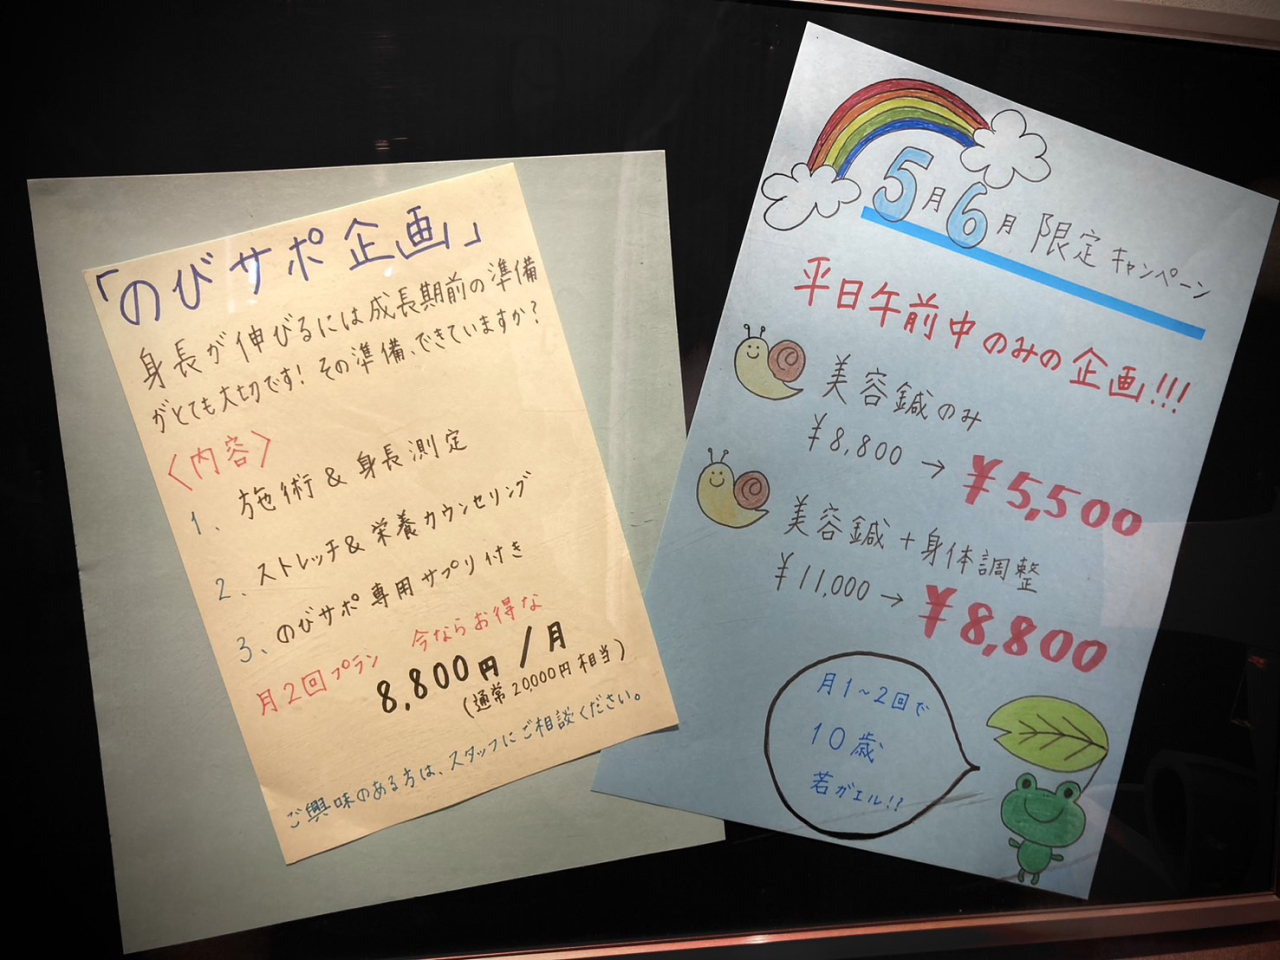 「のびサポ企画」
身長が伸びるには成長期前の準備
がとても大切です!その準備、できていますか?
〈内容〉
1、施術&身長測定
2、ストレッチ&栄養カウンセリング
3、のびサポ専用サプリ付き
月2回プラン 今ならお得な
8,800円/月
(通常20,000円相当)
ご興味のある方は、スタッフにご相談ください。
5月6月限定キャンペーン
平日午前中のみの企画!!!
美容鍼のみ
¥8,800→¥5,500
美容鍼+身体調整
¥11,000→¥8,800
月1~2回で
10歳
若ガエル!?